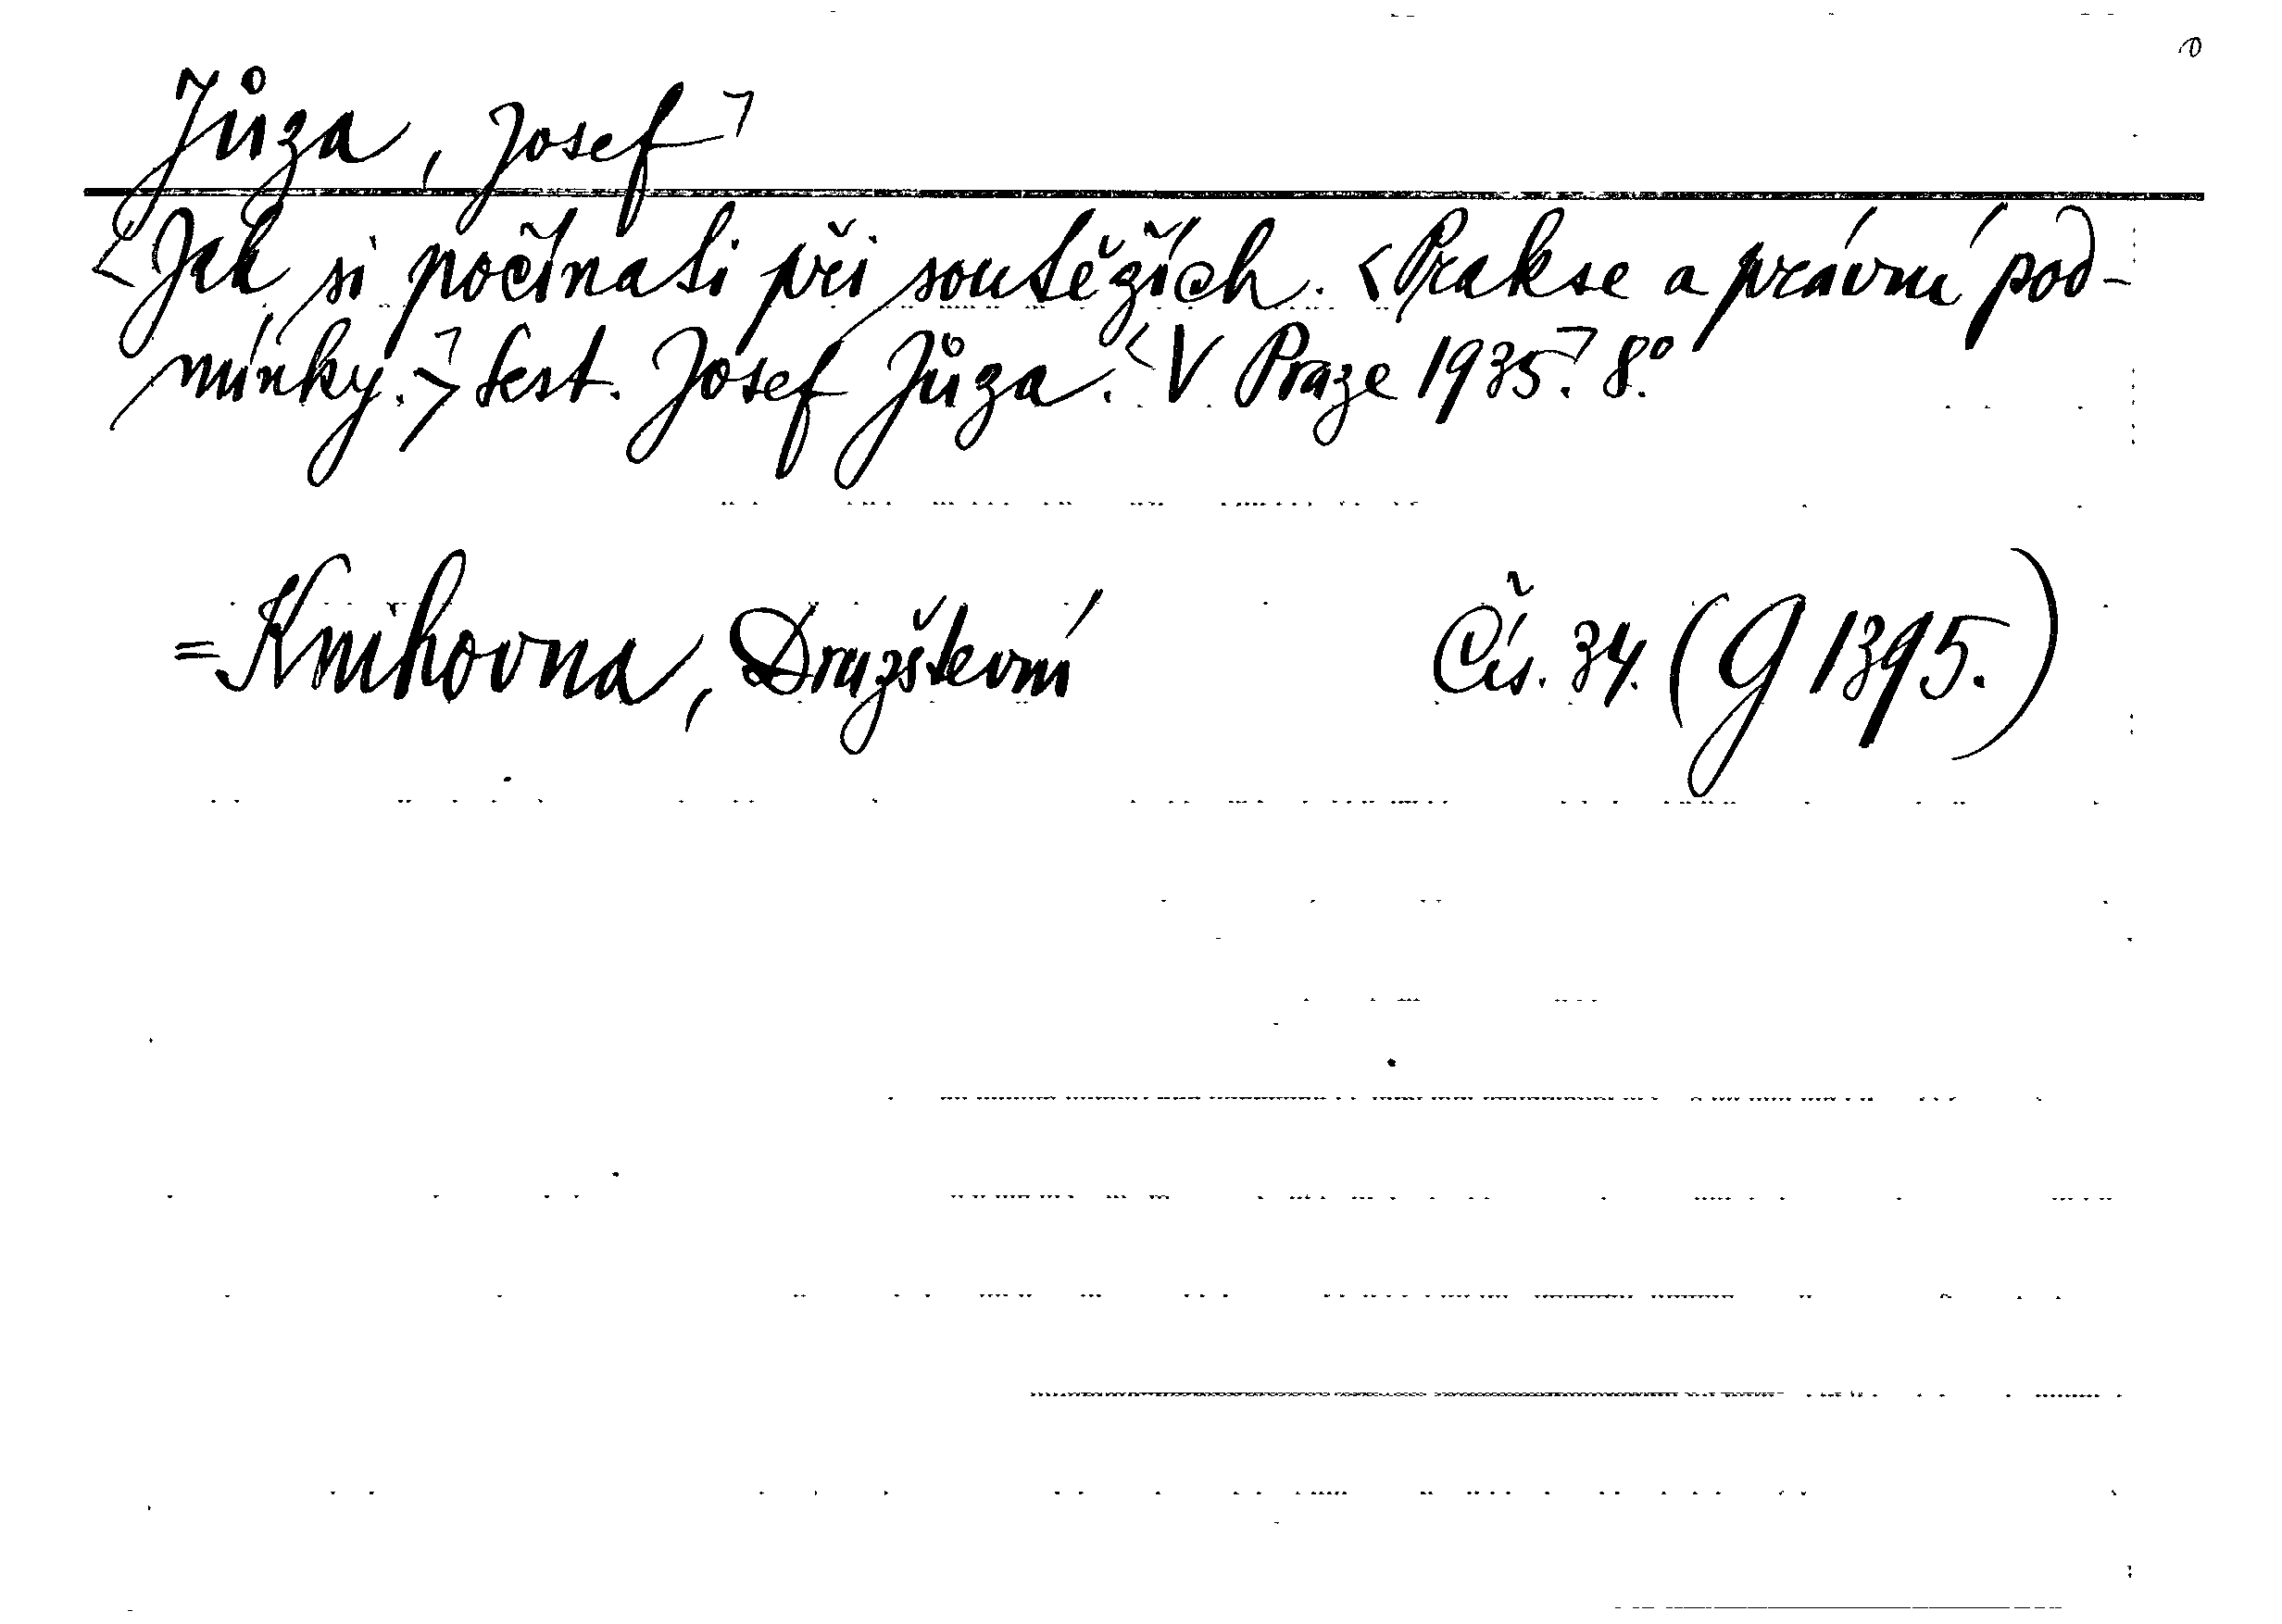 Jůza, Josef ¬
<Jak si počínati při soutěžích. <Prakse a právní pod-
mínky.¬> Sest. Josef Jůza. <V Praze 1935.¬ 8.°
=Knihovna, Družštevní Čís. 34. (G 1395.)